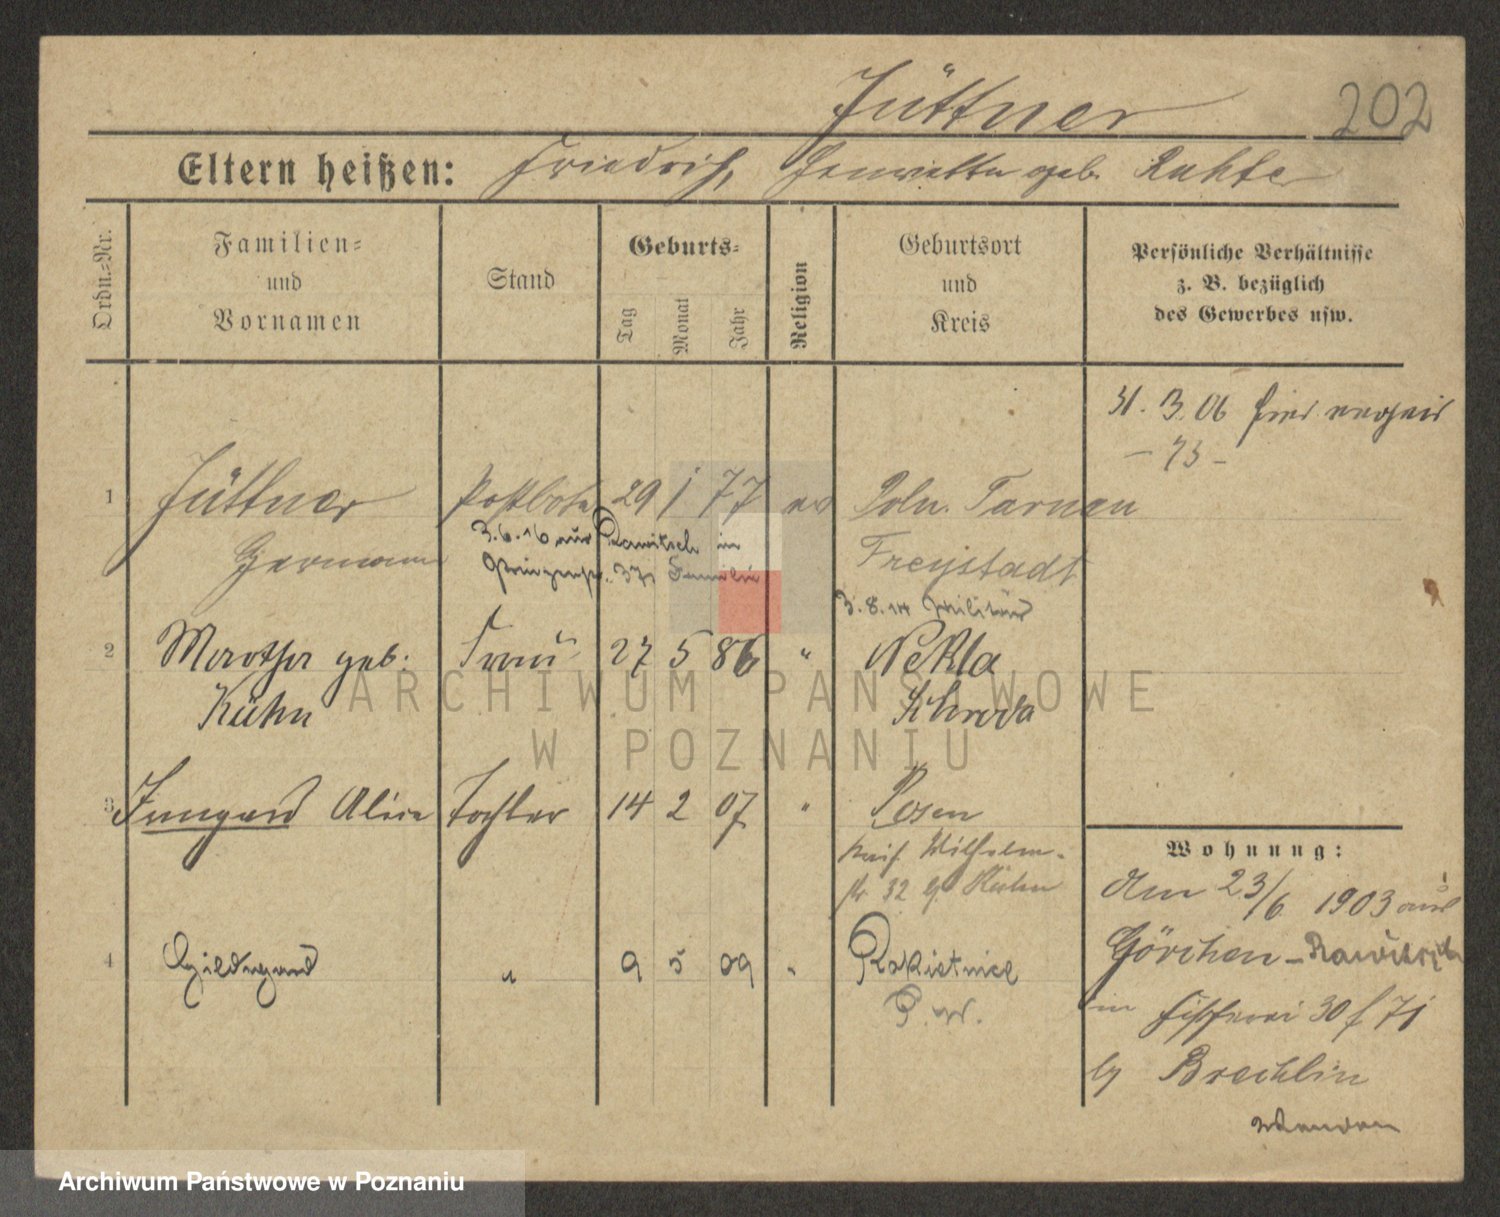 Jüttner
202
Eltern heißen: Friedrich, Henriette geb. Rahte
Ordn.=Nr.
Familien=
und
Vornamen
Stand
Geburts=
Tag
Monat
Jahr
Religion
Geburtsort
und
Kreis
Persönliche Verhältnisse
z. B. bezüglich
des Gewerbes usw.
31. 3. 06 hier
- 73 -
1 Jüttner Postbote 29 1 77 ev Poln. Tarnau
Hermann
3.6.16 aus Rawitsch in
37, Familie
Freystadt
3.8.14 Militär
2 Martha geb. Frau 27 5 86 " Nekla
Kühn Schroda
3 Irmgard Alice Tochter 14 2 07 " Posen
Kais. Wilhelm-
str 32 b/ Kühn
4 Hildegard " 9 5 09 " Rokietnice
P. W.
Wohnung:
Am 23/6 1903 aus
Görchen - Rawitsch
in Fischerei 30 f 71
by Brechlin
Wenden
ARCHIWUM PAŃSTWOWE
W POZNANIU
Archiwum Państwowe w Poznaniu